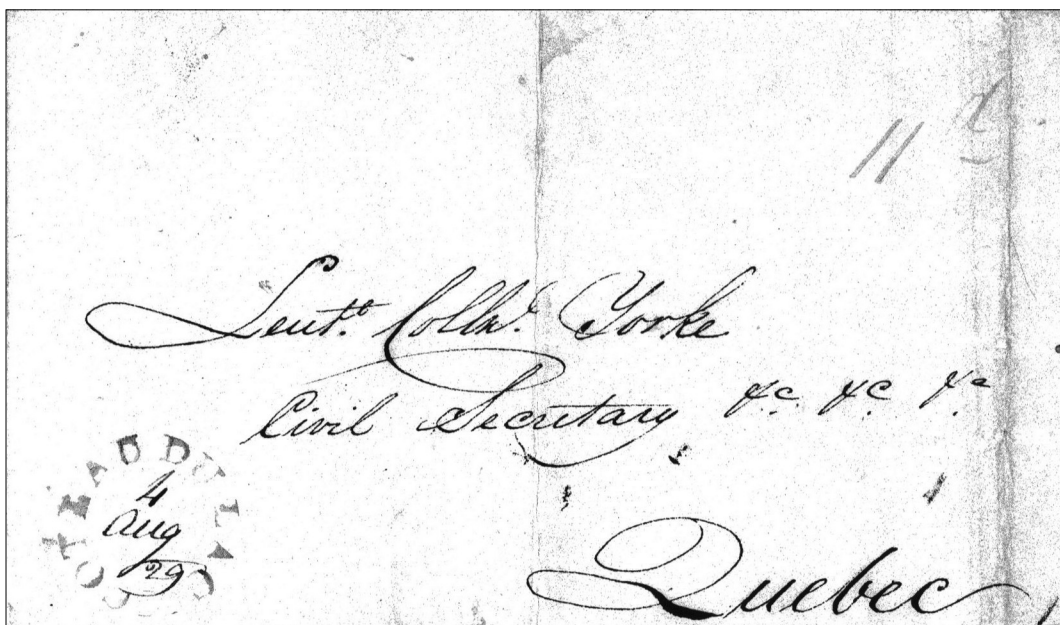 11 d
Leutt. Colln.l Yorke
Civil Secretary &c. &c. &c.
COTEAU DU LAC
4
Aug
29
Quebec